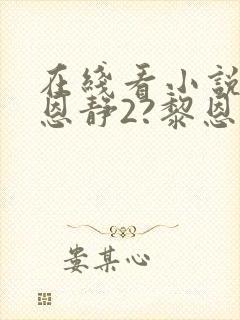 在綫看小說
恩静2?黎恩
娄某心